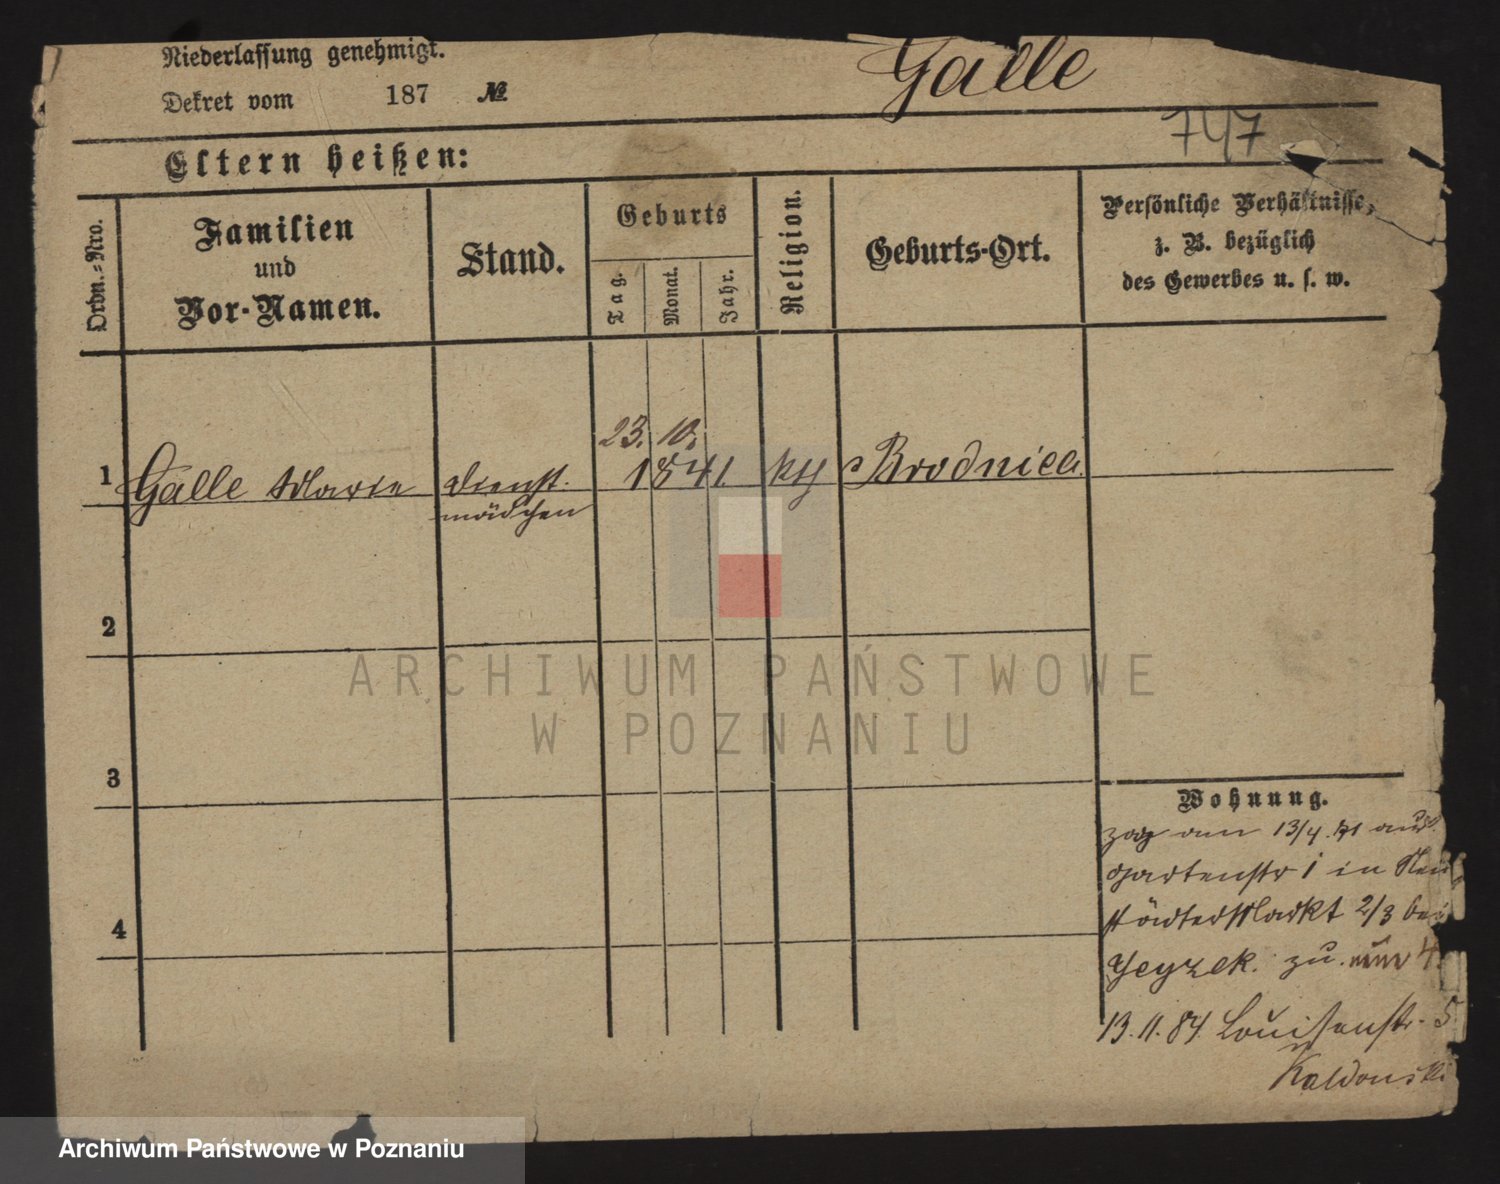 Niederlassung genehmigt.
Dekret vom 187 №
Galle
747
Eltern heißen:
Ordn.=Nro.
Familien
und
Vor-Namen.
Stand.
Geburts
Tag.
Monat.
Jahr.
Religion.
Geburts-Ort.
Persönliche Verhältnisse,
z. B. bezüglich
des Gewerbes u. s. w.
23. 10.
1 Galle Marie Dienst- 1841 kth Brodnica
mädchen
2
3
4
Wohnung.
zog am 13/4. 71 aus
Gartenstr 1 in Neu
städter Markt 2/3 bei
zu
13.11.84 Louisenstr. 5
ARCHIWUM PAŃSTWOWE
W POZNANIU
Archiwum Państwowe w Poznaniu